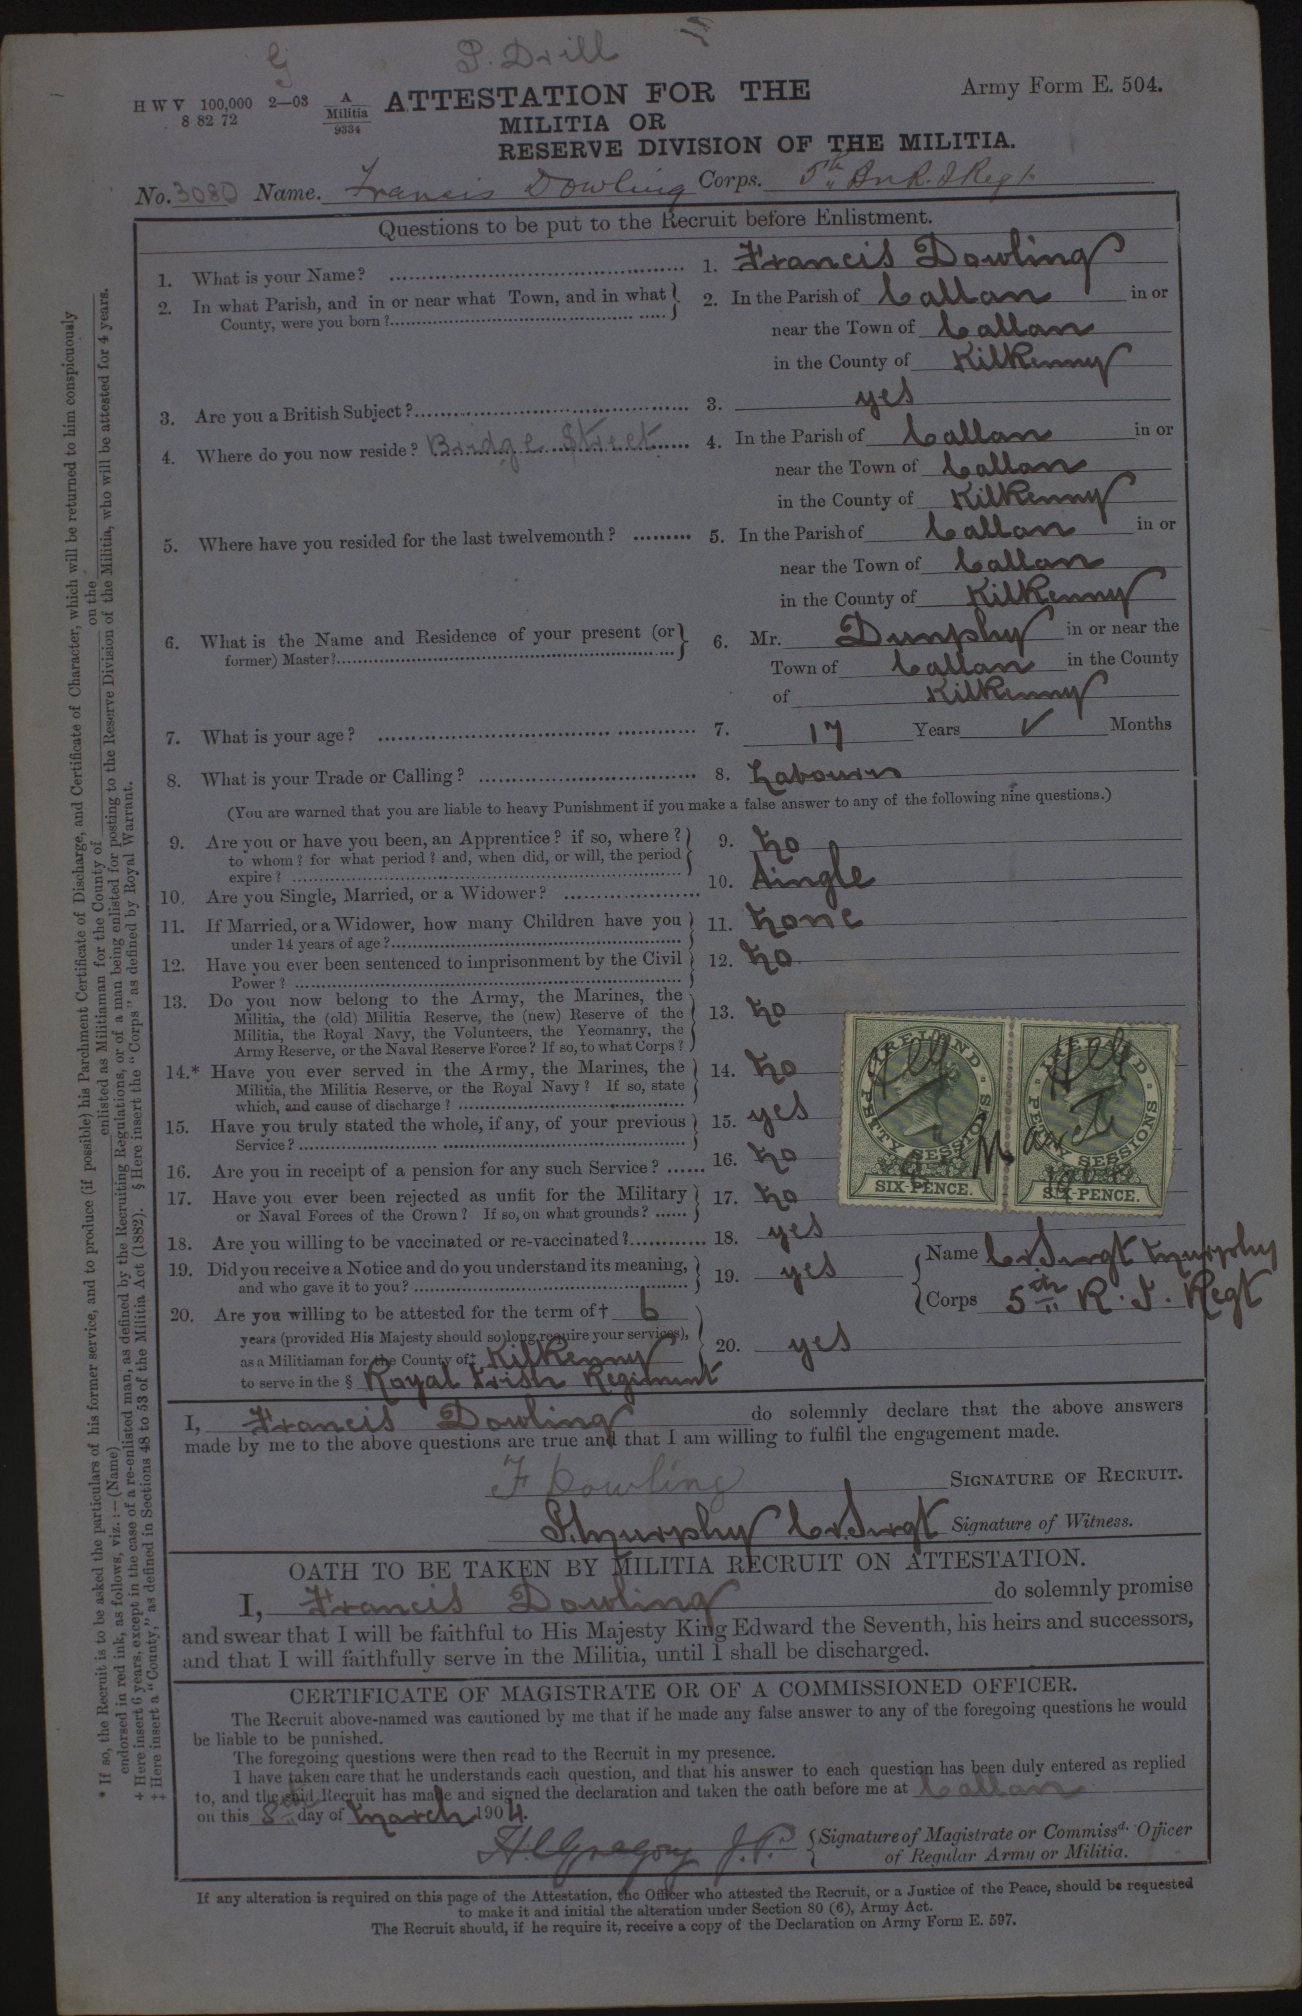 G P. Drill
H W V 100,000 2—03 A Militia 9334
8 82 72
ATTESTATION FOR THE
Army Form E. 504.
MILITIA OR
RESERVE DIVISION OF THE MILITIA.
No. 3080 Name. Francis Dowling Corps. 5th Bn R. I Regt
Questions to be put to the Recruit before Enlistment.
1. What is your Name? 1. Francis Dowling
2. In what Parish, and in or near what Town, and in what 2. In the Parish of Callan in or
County, were you born?
near the Town of Callan
in the County of Kilkenny
3. Are you a British Subject? 3. yes
4. Where do you now reside? Bridge Street 4. In the Parish of Callan in or
near the Town of Callan
in the County of Kilkenny
5. Where have you resided for the last twelvemonth? 5. In the Parish of Callan in or
near the Town of Callan
in the County of Kilkenny
6. What is the Name and Residence of your present (or 6. Mr. Dunphy in or near the
former) Master?
Town of Callan in the County
of Kilkenny
7. What is your age? 7. 17 Years ✓ Months
8. What is your Trade or Calling? 8. Labourer
(You are warned that you are liable to heavy Punishment if you make a false answer to any of the following nine questions.)
9. Are you or have you been, an Apprentice? if so, where? 9. No
to whom? for what period? and, when did, or will, the period
expire?
10. Are you Single, Married, or a Widower? 10. Single
11. If Married, or a Widower, how many Children have you 11. None
under 14 years of age?
12. Have you ever been sentenced to imprisonment by the Civil 12. No
Power?
13. Do you now belong to the Army, the Marines, the 13. No
Militia, the (old) Militia Reserve, the (new) Reserve of the
Militia, the Royal Navy, the Volunteers, the Yeomanry, the
Army Reserve, or the Naval Reserve Force? If so, to what Corps?
14.* Have you ever served in the Army, the Marines, the 14. No
Militia, the Militia Reserve, or the Royal Navy? If so, state
which, and cause of discharge?
15. Have you truly stated the whole, if any, of your previous 15. yes
Service?
16. Are you in receipt of a pension for any such Service? 16. No
17. Have you ever been rejected as unfit for the Military 17. No
or Naval Forces of the Crown? If so, on what grounds?
IRELAND PETTY SESSIONS SIX-PENCE.
IRELAND PETTY SESSIONS SIX-PENCE.
March
18. Are you willing to be vaccinated or re-vaccinated? 18. yes
19. Did you receive a Notice and do you understand its meaning, 19. yes Name Cr Sergt Murphy
and who gave it to you?
Corps 5th R. I. Regt
20. Are you willing to be attested for the term of † 6
years (provided His Majesty should so long require your services), 20. yes
as a Militiaman for the County of ‡ Kilkenny
to serve in the § Royal Irish Regiment
I, Francis Dowling do solemnly declare that the above answers
made by me to the above questions are true and that I am willing to fulfil the engagement made.
F Dowling SIGNATURE OF RECRUIT.
P. Murphy Cr. Sergt Signature of Witness.
OATH TO BE TAKEN BY MILITIA RECRUIT ON ATTESTATION.
I, Francis Dowling do solemnly promise
and swear that I will be faithful to His Majesty King Edward the Seventh, his heirs and successors,
and that I will faithfully serve in the Militia, until I shall be discharged.
CERTIFICATE OF MAGISTRATE OR OF A COMMISSIONED OFFICER.
The Recruit above-named was cautioned by me that if he made any false answer to any of the foregoing questions he would
be liable to be punished.
The foregoing questions were then read to the Recruit in my presence.
I have taken care that he understands each question, and that his answer to each question has been duly entered as replied
to, and the said Recruit has made and signed the declaration and taken the oath before me at Callan
on this 8th day of March 1904.
H. C Gregory J.P. Signature of Magistrate or Commissd. Officer
of Regular Army or Militia.
If any alteration is required on this page of the Attestation, the Officer who attested the Recruit, or a Justice of the Peace, should be requested
to make it and initial the alteration under Section 80 (6), Army Act.
The Recruit should, if he require it, receive a copy of the Declaration on Army Form E. 597.
* If so, the Recruit is to be asked the particulars of his former service, and to produce (if possible) his Parchment Certificate of Discharge, and Certificate of Character, which will be returned to him conspicuously
endorsed in red ink, as follows, viz.:—(Name) enlisted as Militiaman for the County of on the
† Here insert 6 years, except in the case of a re-enlisted man, as defined by the Recruiting Regulations, or of a man being enlisted for posting to the Reserve Division of the Militia, who will be attested for 4 years.
‡ Here insert a "County," as defined in Sections 48 to 53 of the Militia Act (1882). § Here insert the "Corps" as defined by Royal Warrant.